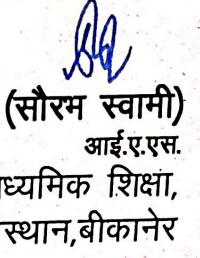 (सौरभ स्वामी)
आई.ए.एस.
ध्यमिक शिक्षा,
स्थान,बीकानेर